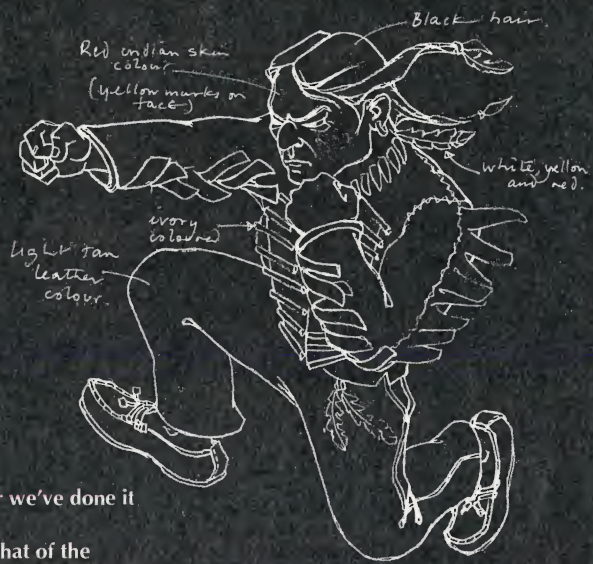 Black hair.
Red indian skin
colour
(yellow marks on
face)
white, yellow
and red.
ivory
coloured
light tan
leather
colour.
we've done it
hat of the